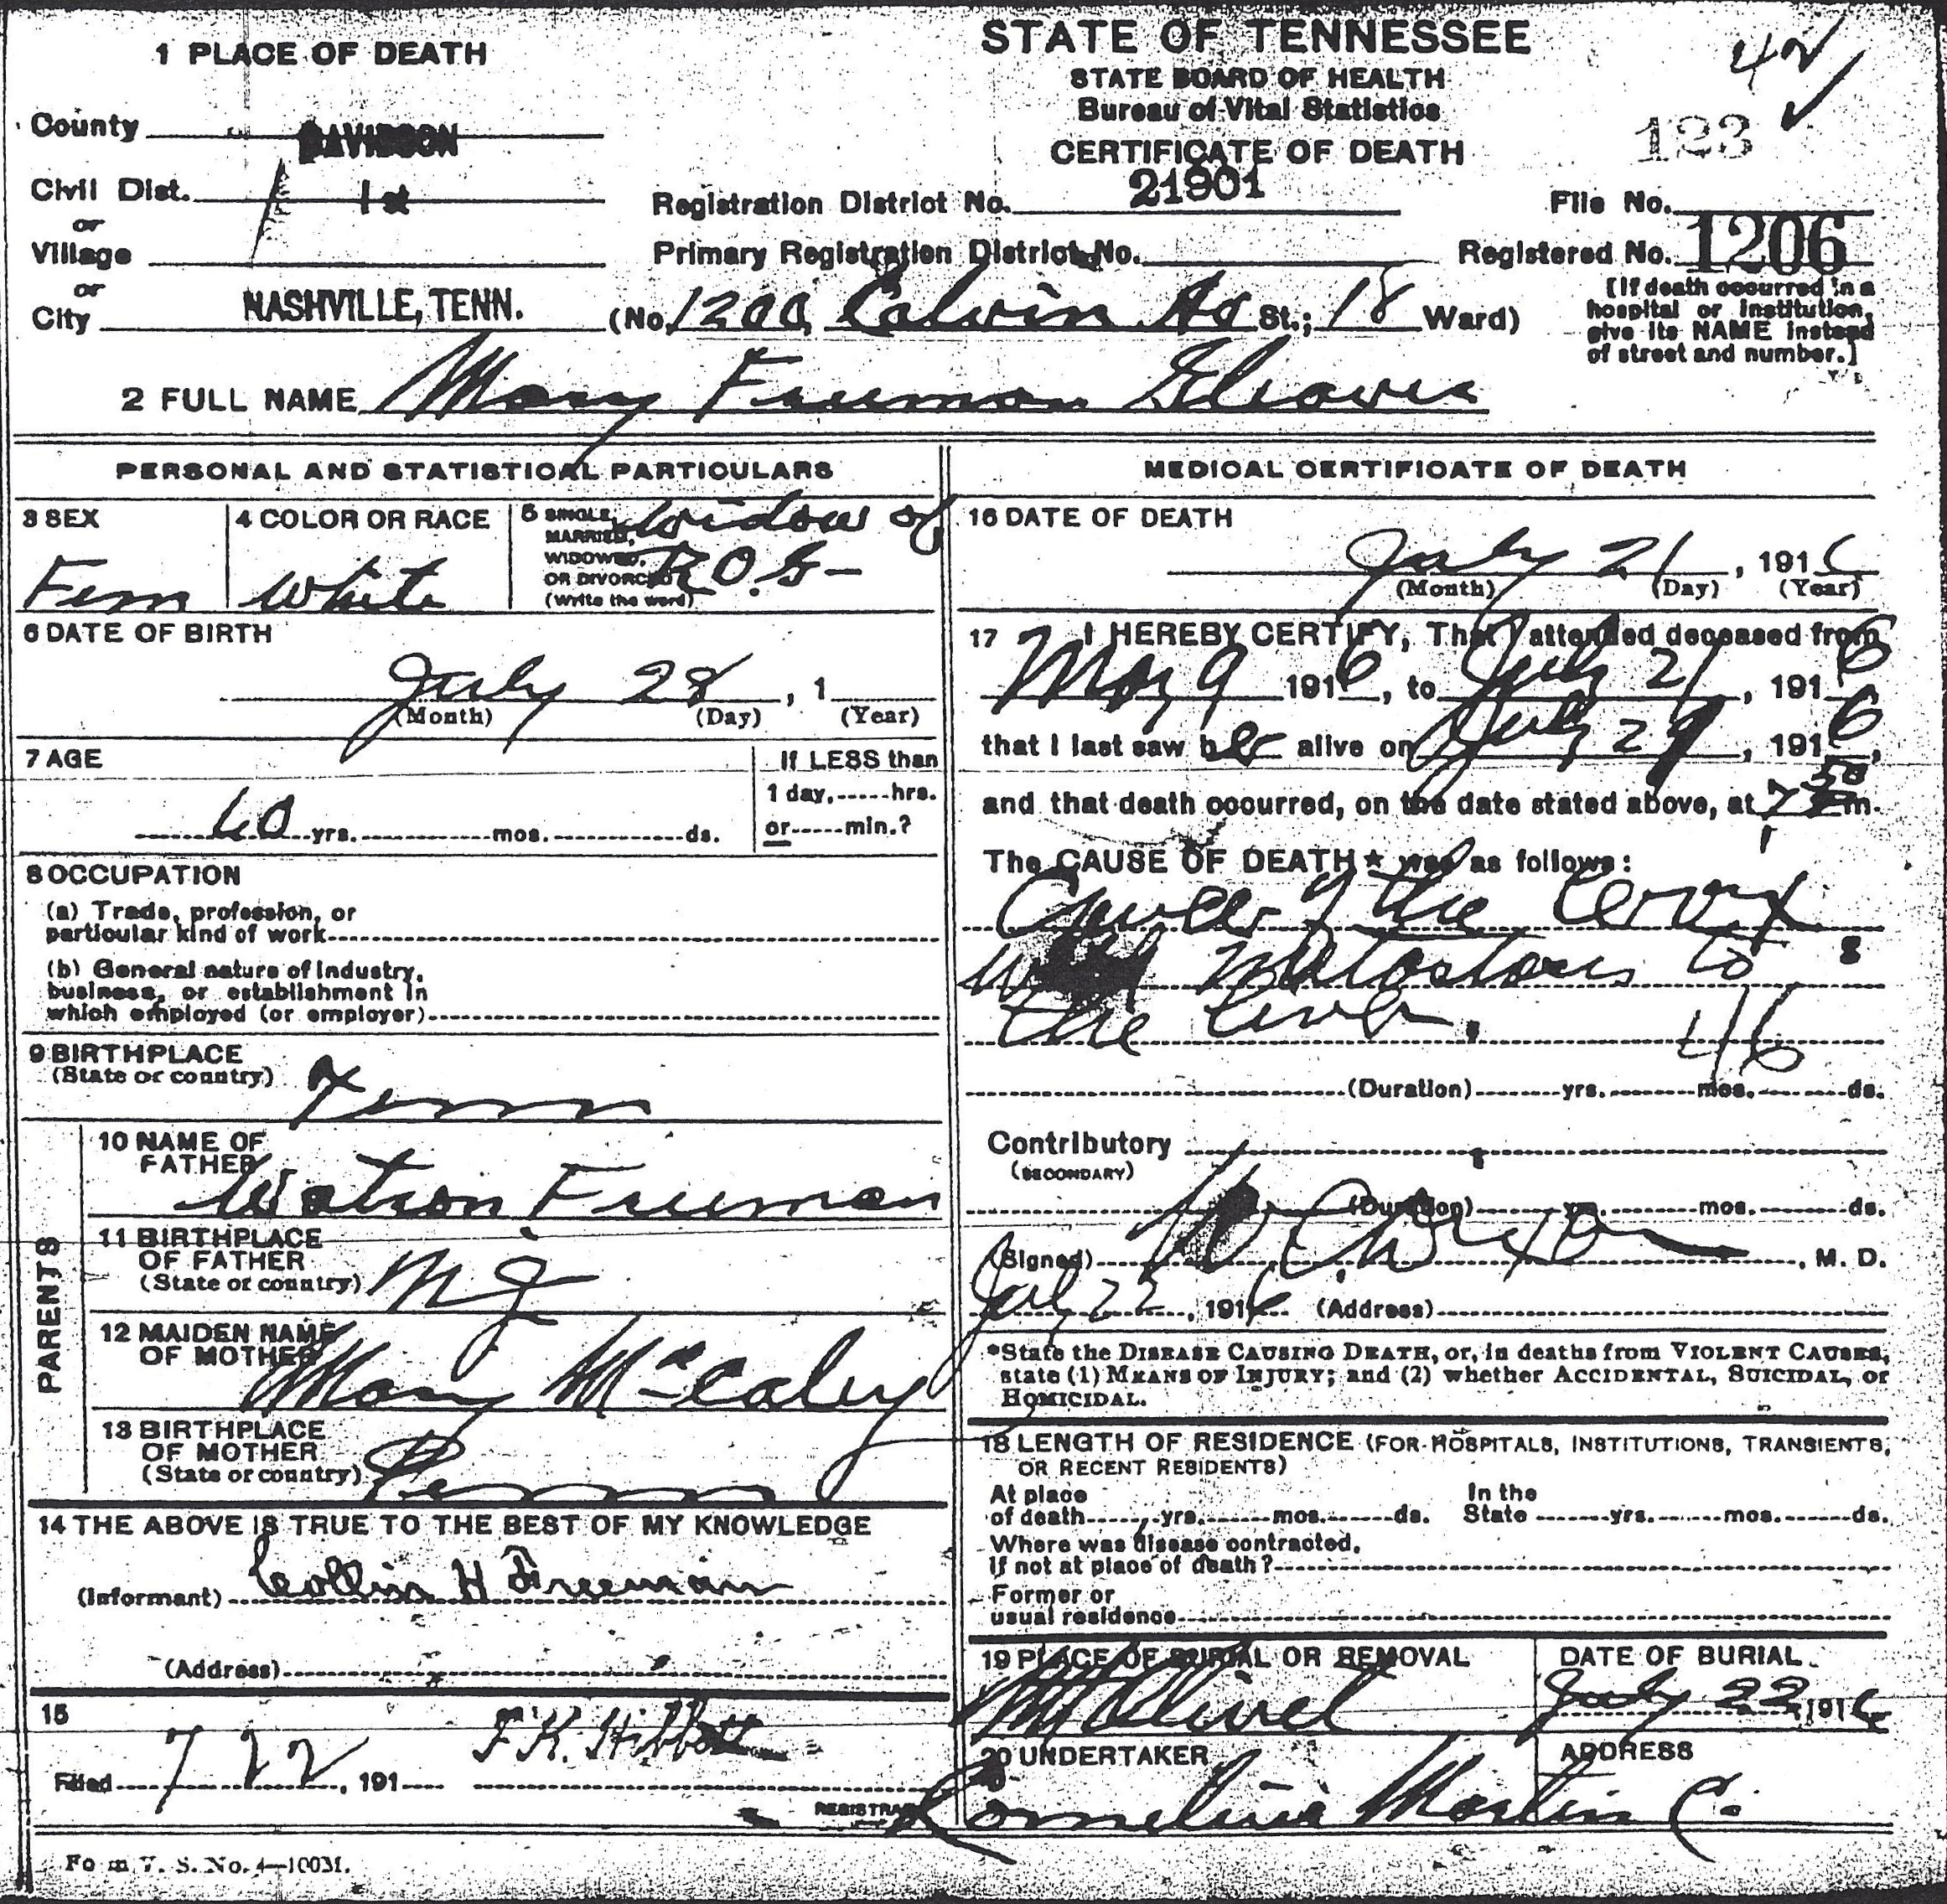 STATE OF TENNESSEE
STATE BOARD OF HEALTH
Bureau of Vital Statistics
CERTIFICATE OF DEATH
42
123
1 PLACE OF DEATH
County DAVIDSON
Civil Dist. 1st
or
Village
or
City NASHVILLE, TENN.
Registration District No. 21901
File No.
Primary Registration District No.
Registered No. 1206
(No. 1200 Calvin Av St.; 18 Ward)
[If death occurred in a
hospital or institution,
give its NAME instead
of street and number.]
2 FULL NAME Mary Freeman Gleaves
PERSONAL AND STATISTICAL PARTICULARS
3 SEX
Fem
4 COLOR OR RACE
White
5 SINGLE,
MARRIED,
WIDOWED,
OR DIVORCED
(Write the word)
Widow of
R.O.G-
6 DATE OF BIRTH
July 28, 1
(Month) (Day) (Year)
7 AGE
60 yrs. mos. ds.
If LESS than
1 day, hrs.
or min.?
8 OCCUPATION
(a) Trade, profession, or
particular kind of work
(b) General nature of industry,
business, or establishment in
which employed (or employer)
9 BIRTHPLACE
(State or country) Tenn
PARENTS
10 NAME OF
FATHER
Watson Freeman
11 BIRTHPLACE
OF FATHER
(State or country) N J
12 MAIDEN NAME
OF MOTHER
Mary McCaley
13 BIRTHPLACE
OF MOTHER
(State or country)
14 THE ABOVE IS TRUE TO THE BEST OF MY KNOWLEDGE
(Informant) Collin H Freeman
(Address)
15
Filed 7 22, 191 F.K. Hibbett
REGISTRAR
Form V. S. No. 4—100M.
MEDICAL CERTIFICATE OF DEATH
16 DATE OF DEATH
July 21, 1916
(Month) (Day) (Year)
17 I HEREBY CERTIFY, That I attended deceased from
May 9 1916, to July 21, 1916
that I last saw her alive on July 21, 1916,
and that death occurred, on the date stated above, at 7 50 m.
The CAUSE OF DEATH* was as follows:
Cancer of the Cervix
with Metastasis to
the liver.
46
(Duration) yrs. mos. ds.
Contributory
(SECONDARY)
(Duration) yrs. mos. ds.
(Signed) Dixon, M. D.
July 22, 1916 (Address)
*State the DISEASE CAUSING DEATH, or, in deaths from VIOLENT CAUSES,
state (1) MEANS OF INJURY; and (2) whether ACCIDENTAL, SUICIDAL, or
HOMICIDAL.
18 LENGTH OF RESIDENCE (FOR HOSPITALS, INSTITUTIONS, TRANSIENTS,
OR RECENT RESIDENTS)
At place
of death yrs. mos. ds.
In the
State yrs. mos. ds.
Where was disease contracted,
If not at place of death?
Former or
usual residence
19 PLACE OF BURIAL OR REMOVAL
Mt Olivet
DATE OF BURIAL
July 22 1916
20 UNDERTAKER
ADDRESS
Cornelius Martin Co.